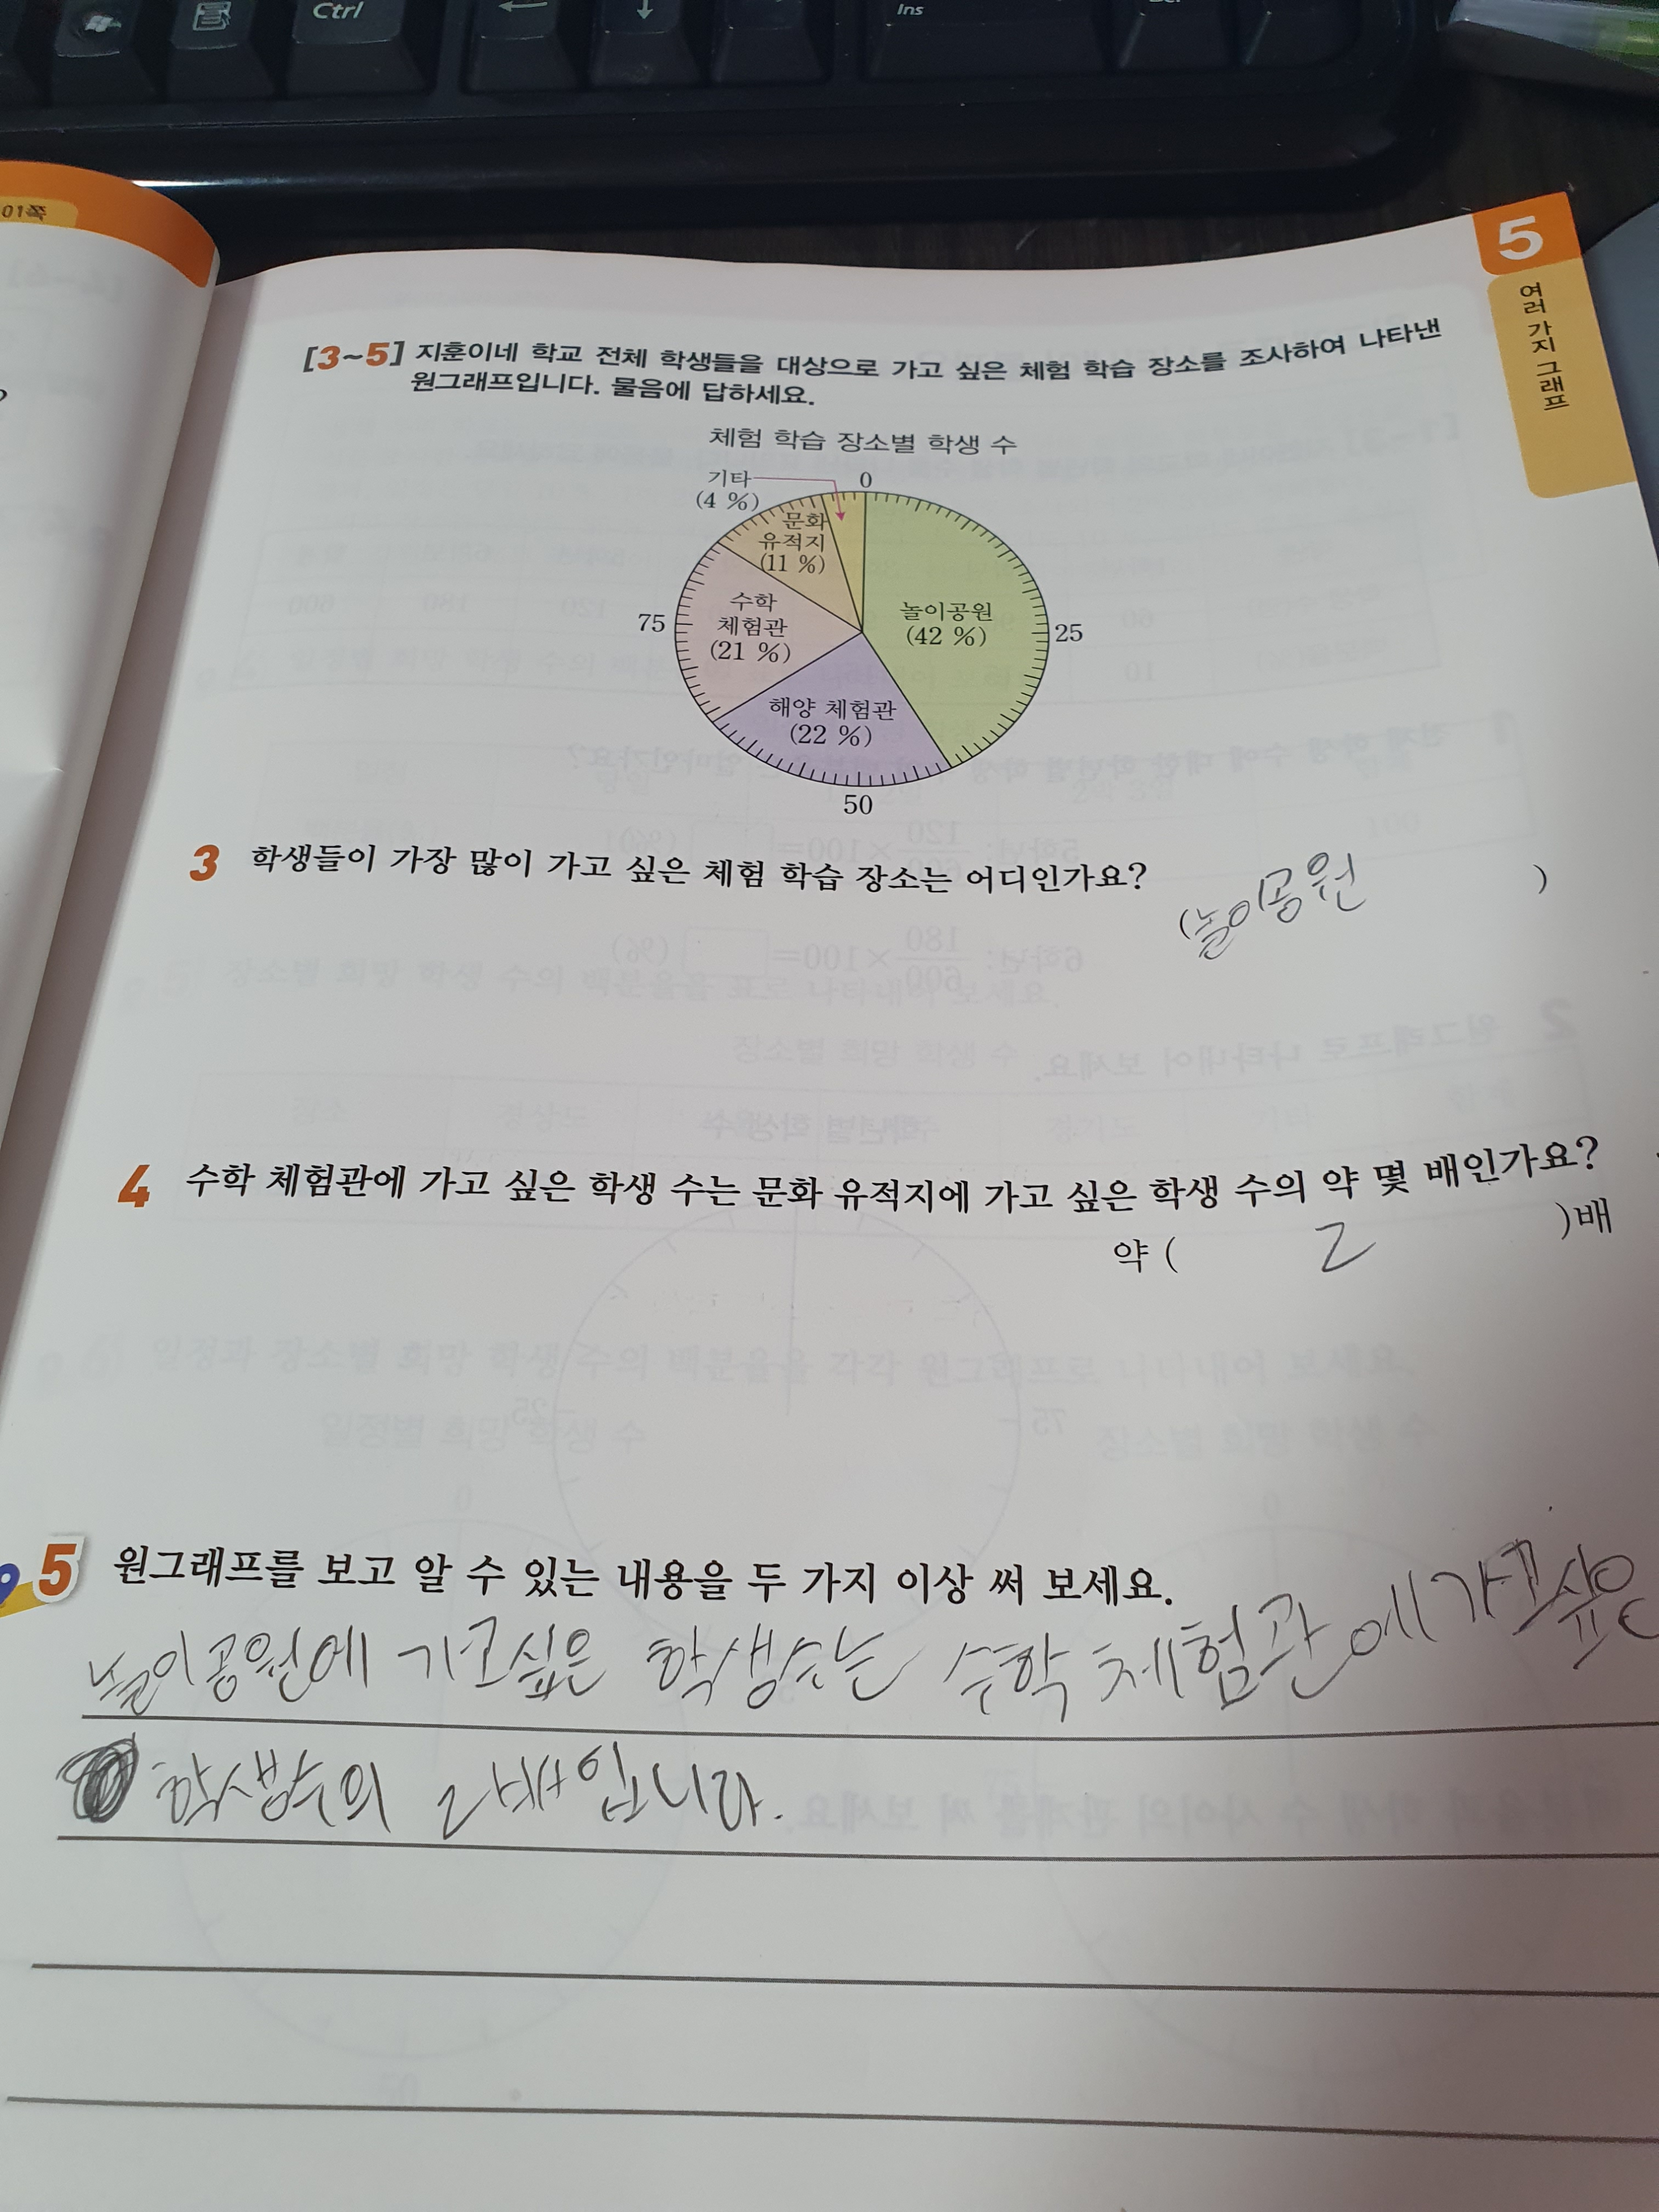 Ctrl
Ins
01쪽
5
여러 가지 그래프
[3~5] 지훈이네 학교 전체 학생들을 대상으로 가고 싶은 체험 학습 장소를 조사하여 나타낸
원그래프입니다. 물음에 답하세요.
체험 학습 장소별 학생 수
기타
(4 %)
0
문화
유적지
(11 %)
수학
체험관
(21 %)
75
놀이공원
(42 %)
25
해양 체험관
(22 %)
50
3 학생들이 가장 많이 가고 싶은 체험 학습 장소는 어디인가요?
(놀이공원 )
4 수학 체험관에 가고 싶은 학생 수는 문화 유적지에 가고 싶은 학생 수의 약 몇 배인가요?
약 ( 2 )배
5 원그래프를 보고 알 수 있는 내용을 두 가지 이상 써 보세요.
놀이공원에 가고싶은 학생수는 수학체험관에 가고싶은
학생수의 2배입니다.